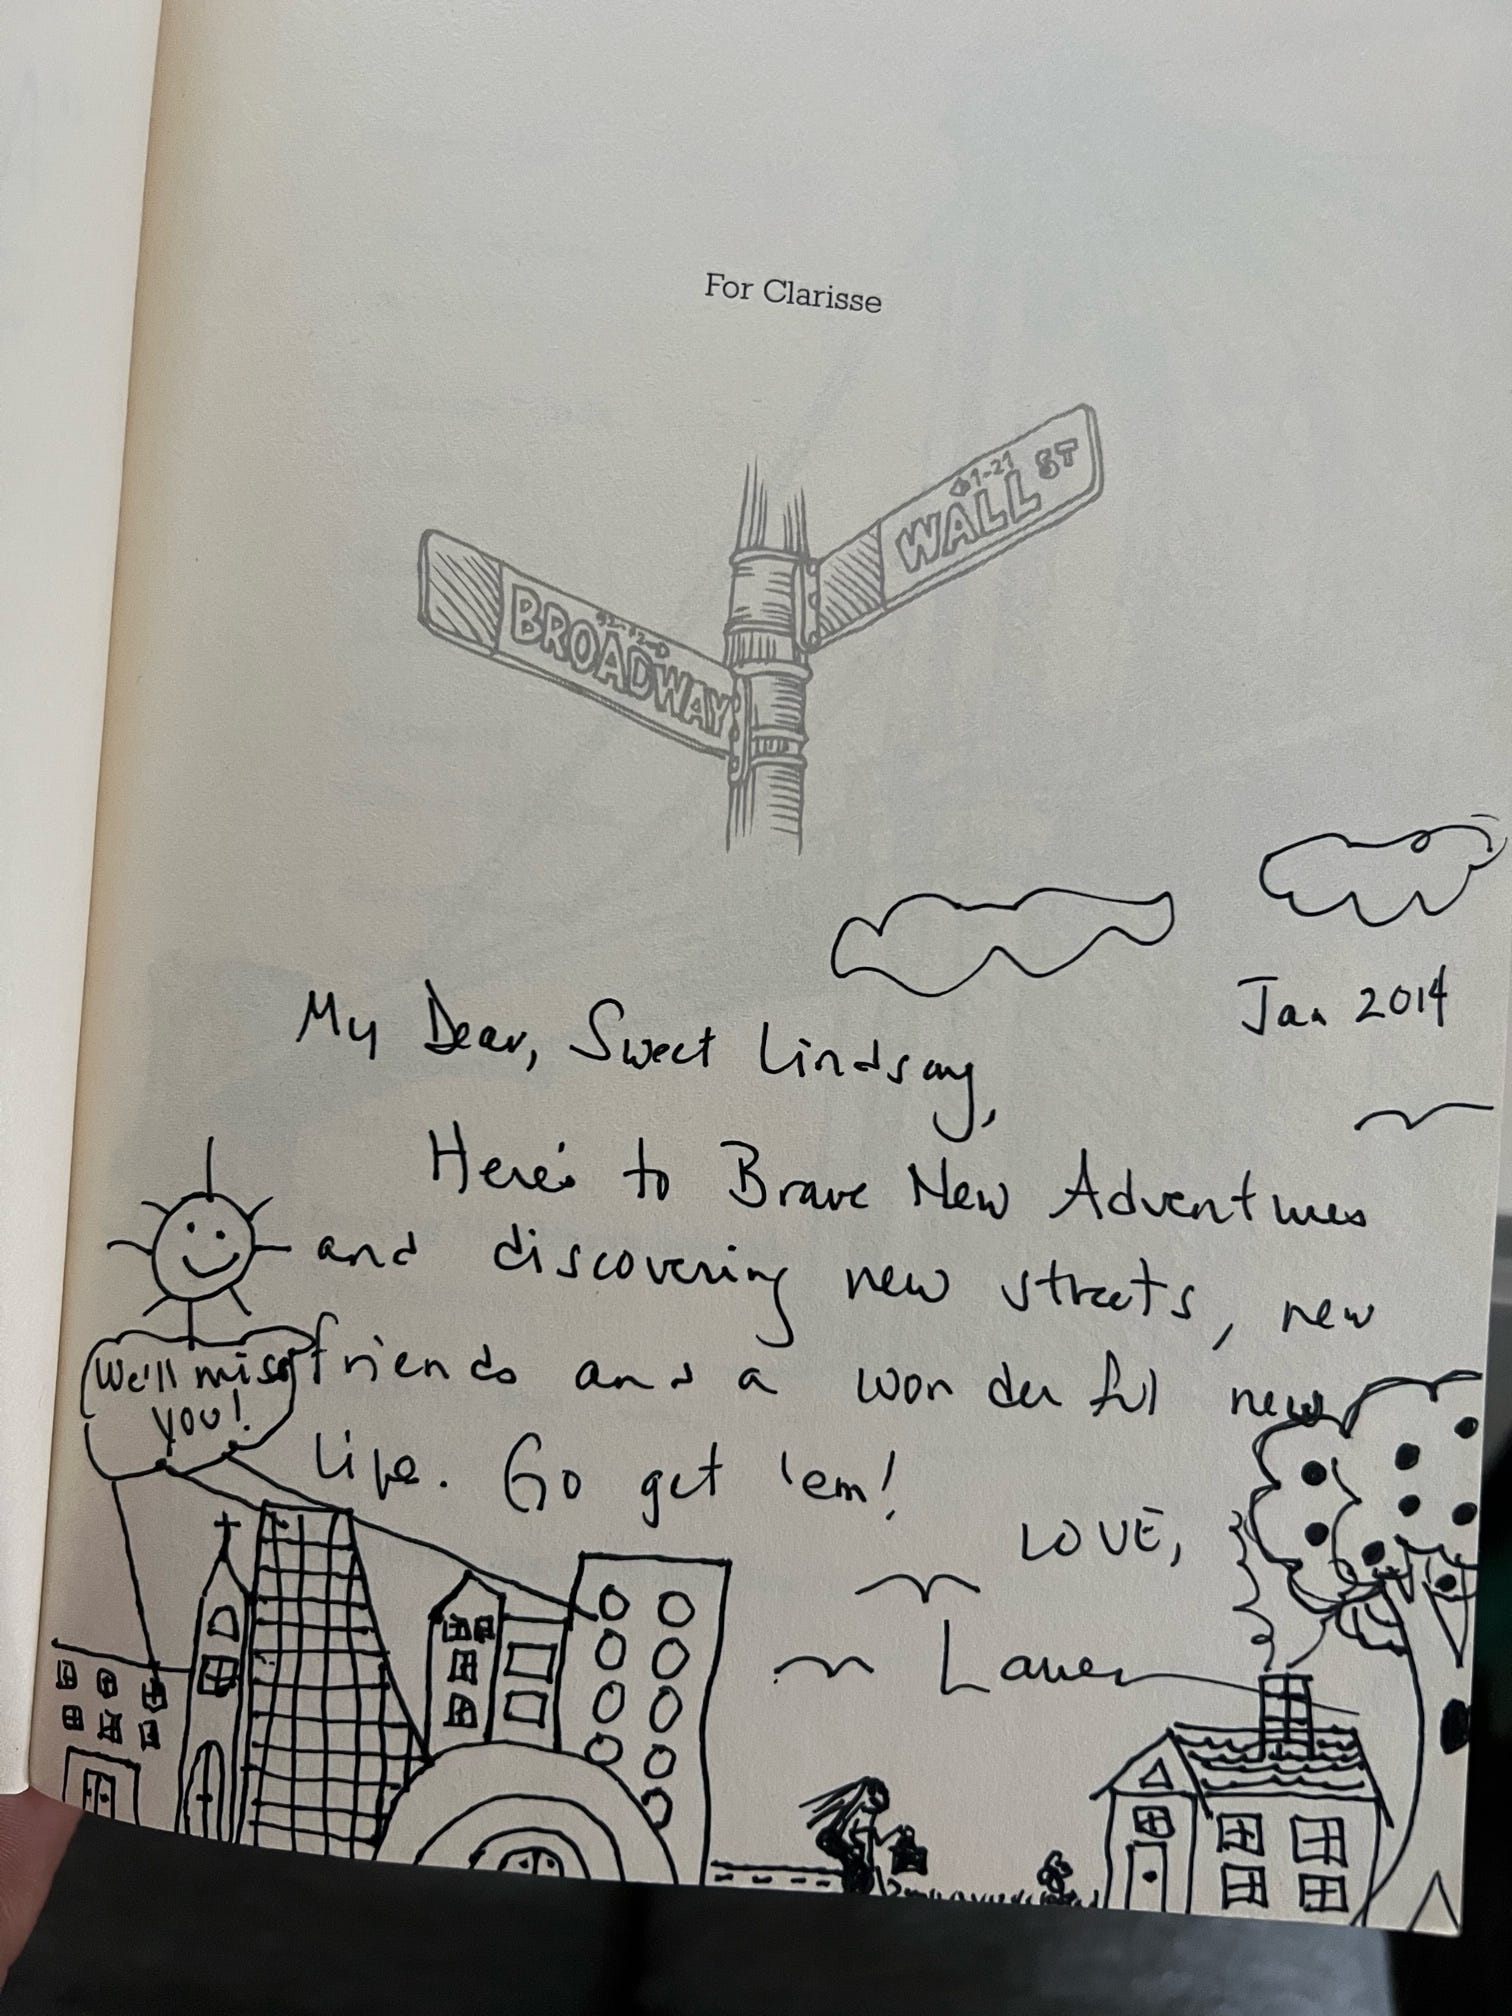 For Clarisse
WALL ST
BROADWAY
Jan 2014
My Dear, Sweet Lindsay,
Here's to Brave New Adventures
and discovering new streets, new
friends and a wonderful new
life. Go get 'em!
We'll miss
you!
LOVE,